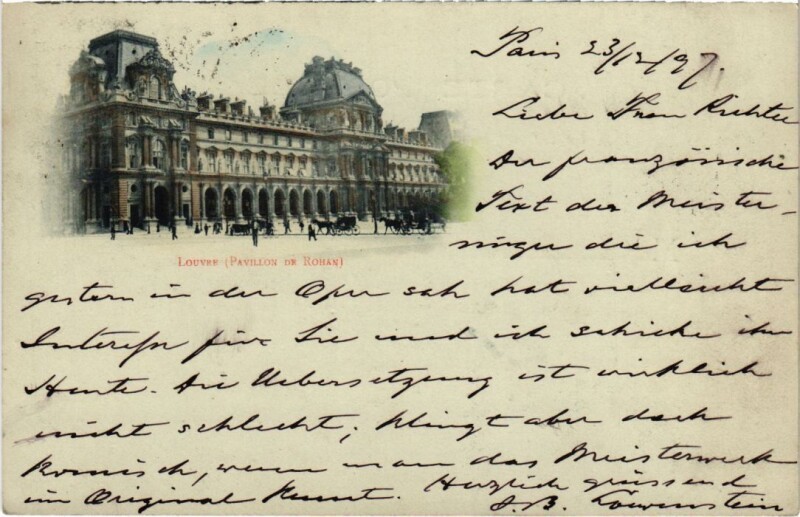 Paris 23/12/97.
Liebe Frau Richter
Der französische
Text der Meister-
singer die ich
LOUVRE (PAVILLON DE ROHAN)
gestern in der Oper sah hat vielleicht
Interesse für Sie und ich schicke ihn
Heute. Die Uebersetzung ist wirklich
nicht schlecht; klingt aber doch
komisch, wenn man das Meisterwerk
im Original kennt. Herzlich grüssend
J. B. Löwenstein